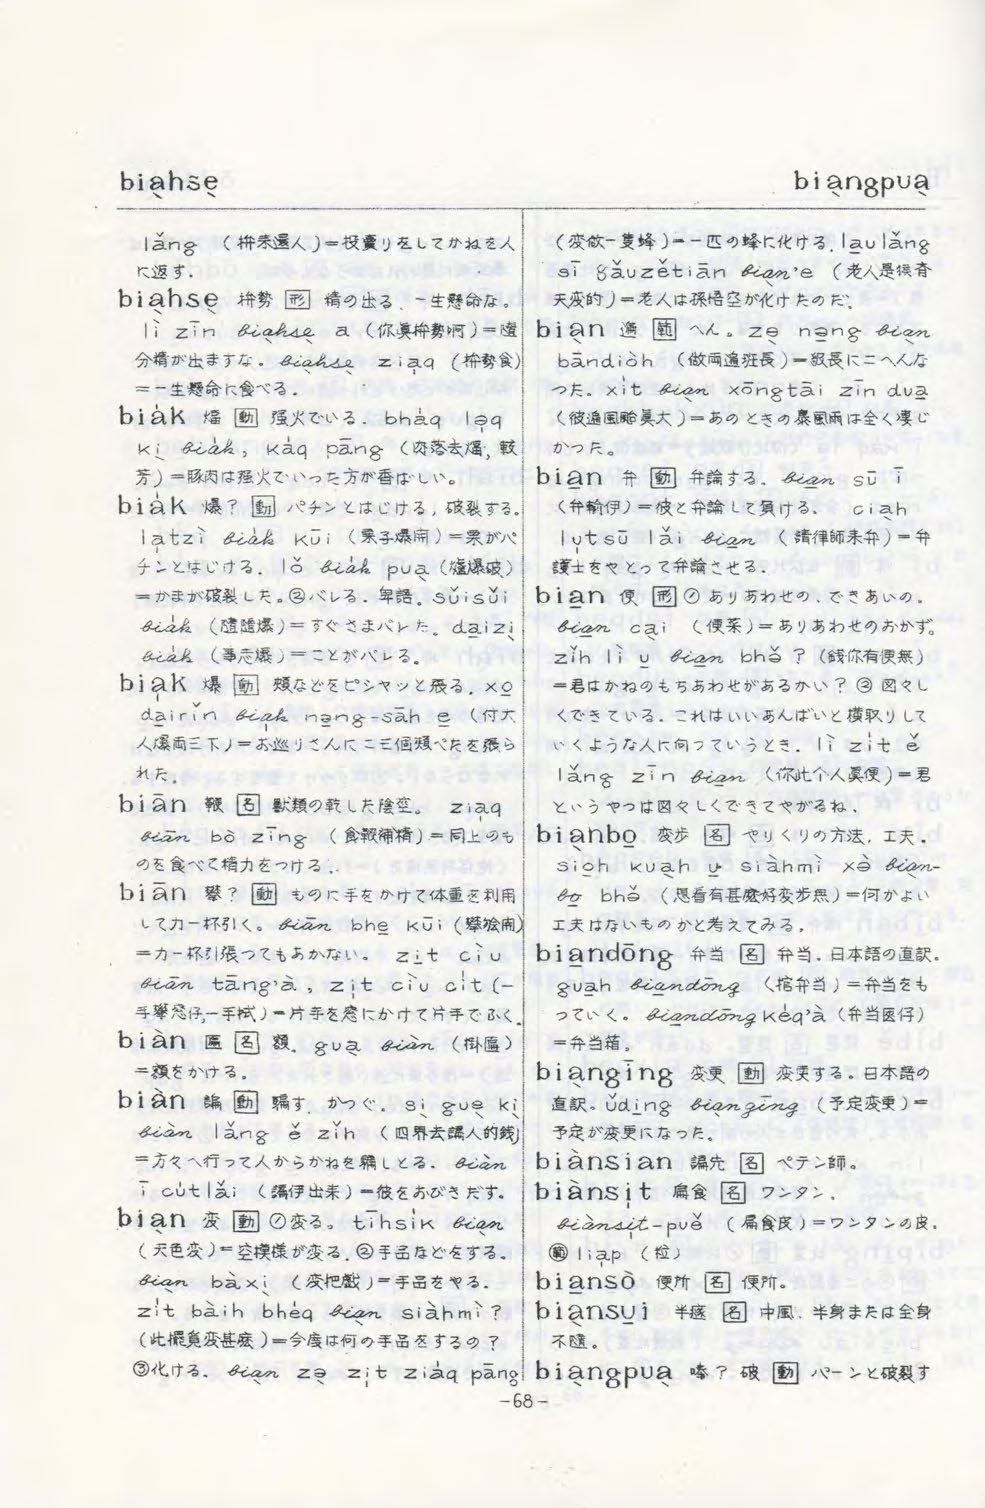 biạhsẹ
biạngpuạ
lǎng (拚来還人)=投賣りをしてかねを人
に返す.
biạhsẹ 拚勢 形 精の出る、一生懸命な。
lì zīn biạhsẹ a (你真拚勢啊)=随
分精が出ますな. biạhsẹ ziạq (拚勢食)
=一生懸命に食べる.
biȧk 煏 動 强火でいる. bhȧq lạq
kị biȧk, kȧq pāng (肉落去煏, 較
芳)=豚肉は强火でいった方が香ばしい。
biȧk 爆? 動 パチンとはじける, 破裂する。
lạtzì biȧk kūi (栗子爆開)=栗がパ
チンとはじける. lǒ biȧk puạ (爐爆破)
=かまが破裂した。②バレる. 卑語. sǔisǔi
biȧk (隨隨爆)=すぐさまバレた。daịzị
biȧk (事志爆)=ことがバレる。
biạk 爆 動 頬などをピシャッと張る. xo̱
da̱irīn biạk nṉg-sāh e̱ (付大
人爆両三下)=お巡りさんに二三個頬ぺたを張ら
れた.
biān 鞭 名 獣類の乾した陰茎。 ziaq
biān bò zīng (食鞭補精)=同上のも
のを食べて精力をつける.
biān 攀? 動 ものに手をかけて体重を利用
して力一杯引く。biān bhe̱ kūi (攀獪開)
=力一杯引張ってもあかない。 zịt cìu
biān tāng'à, zịt cìu cit (一
手攀窓仔,一手拭)=片手を窓にかけて片手でふく.
biàn 匾 名 額. guạ biàn (掛匾)
=額をかける.
biàn 諞 動 騙す. かつぐ. sị gue kị
biàn lǎng ě zǐh (四界去諞人的銭)
=方々へ行って人からかねを騙しとる. biàn
ī cu̇tlǎi (諞伊出来)=彼をおびきだす.
biạn 変 動 ①変る。tīhsi̇k biạn
(天色変)=空模様が変る. ②手品などをする.
biạn bàxị (変把戲)=手品をやる.
zi̇t bàih bhėq biạn siàhmì?
(此擺覓変甚麽)=今度は何の手品をするの?
③化ける. biạn zə̣ zịt ziȧq pāng
(変做一隻蜂)=一匹の蜂に化ける. la̱ulǎng
sī gǎuzětiān biạn'e (老人是猴斉
天変的)=老人は孫悟空が化けたのだ.
biạn 遍 範 へん。zə̣ nṉg biạn
bāndiòh (做両遍班長)=級長に二へんな
った. xi̇t biạn xōngtāi zīn duạ
(彼遍風颱真大)=あのときの暴風雨は全く凄じ
かった。
bia̱n 弁 動 弁論する. bia̱n sū ī
(弁輸伊)=彼と弁論して負ける. ciàh
lụtsū lǎi bia̱n (請律師来弁)=弁
護士をやとって弁論させる.
bia̱n 便 形 ①ありあわせの、できあいの.
bia̱n cại (便菜)=ありあわせのおかず。
zǐh lì u̱ bia̱n bhə̌? (銭你有便無)
=君はかねのもちあわせがあるかい? ② 図々し
くできている. これはいいあんばいと横取りして
いくような人に向っていうとき. lì zi̇t ě
lǎng zīn bia̱n (你此个人真便)=君
というやつは図々しくできてやがるね.
biạnbo̱ 変歩 名 やりくりの方法, 工夫.
sio̱h kuạh u̱ siàhmì xə̀ biạn-
bo̱ bhə̌. (想看有甚麽好変歩無)=何かよい
工夫はないものかと考えてみる.
bia̱ndōng 弁当 名 弁当. 日本語の直訳.
gua̱h bia̱ndōng (捾弁当)=弁当をも
っていく. bia̱ndōngkėq'à (弁当医仔)
=弁当箱.
biạngīng 変更 動 変更する. 日本語の
直訳. ǔdi̱ng biạngīng (予定変更)=
予定が変更になった.
biànsian 諞先 名 ペテン師。
biànsịt 扁食 名 ワンタン.
biànsịt-puě (扁食皮)=ワンタンの皮.
範 liạp (粒)
bia̱nsò 便所 名 便所.
biạnsụi 半遂 名 中風. 半身または全身
不随.
biạngpuạ 嗙? 破 動 パーンと破裂す
-68-